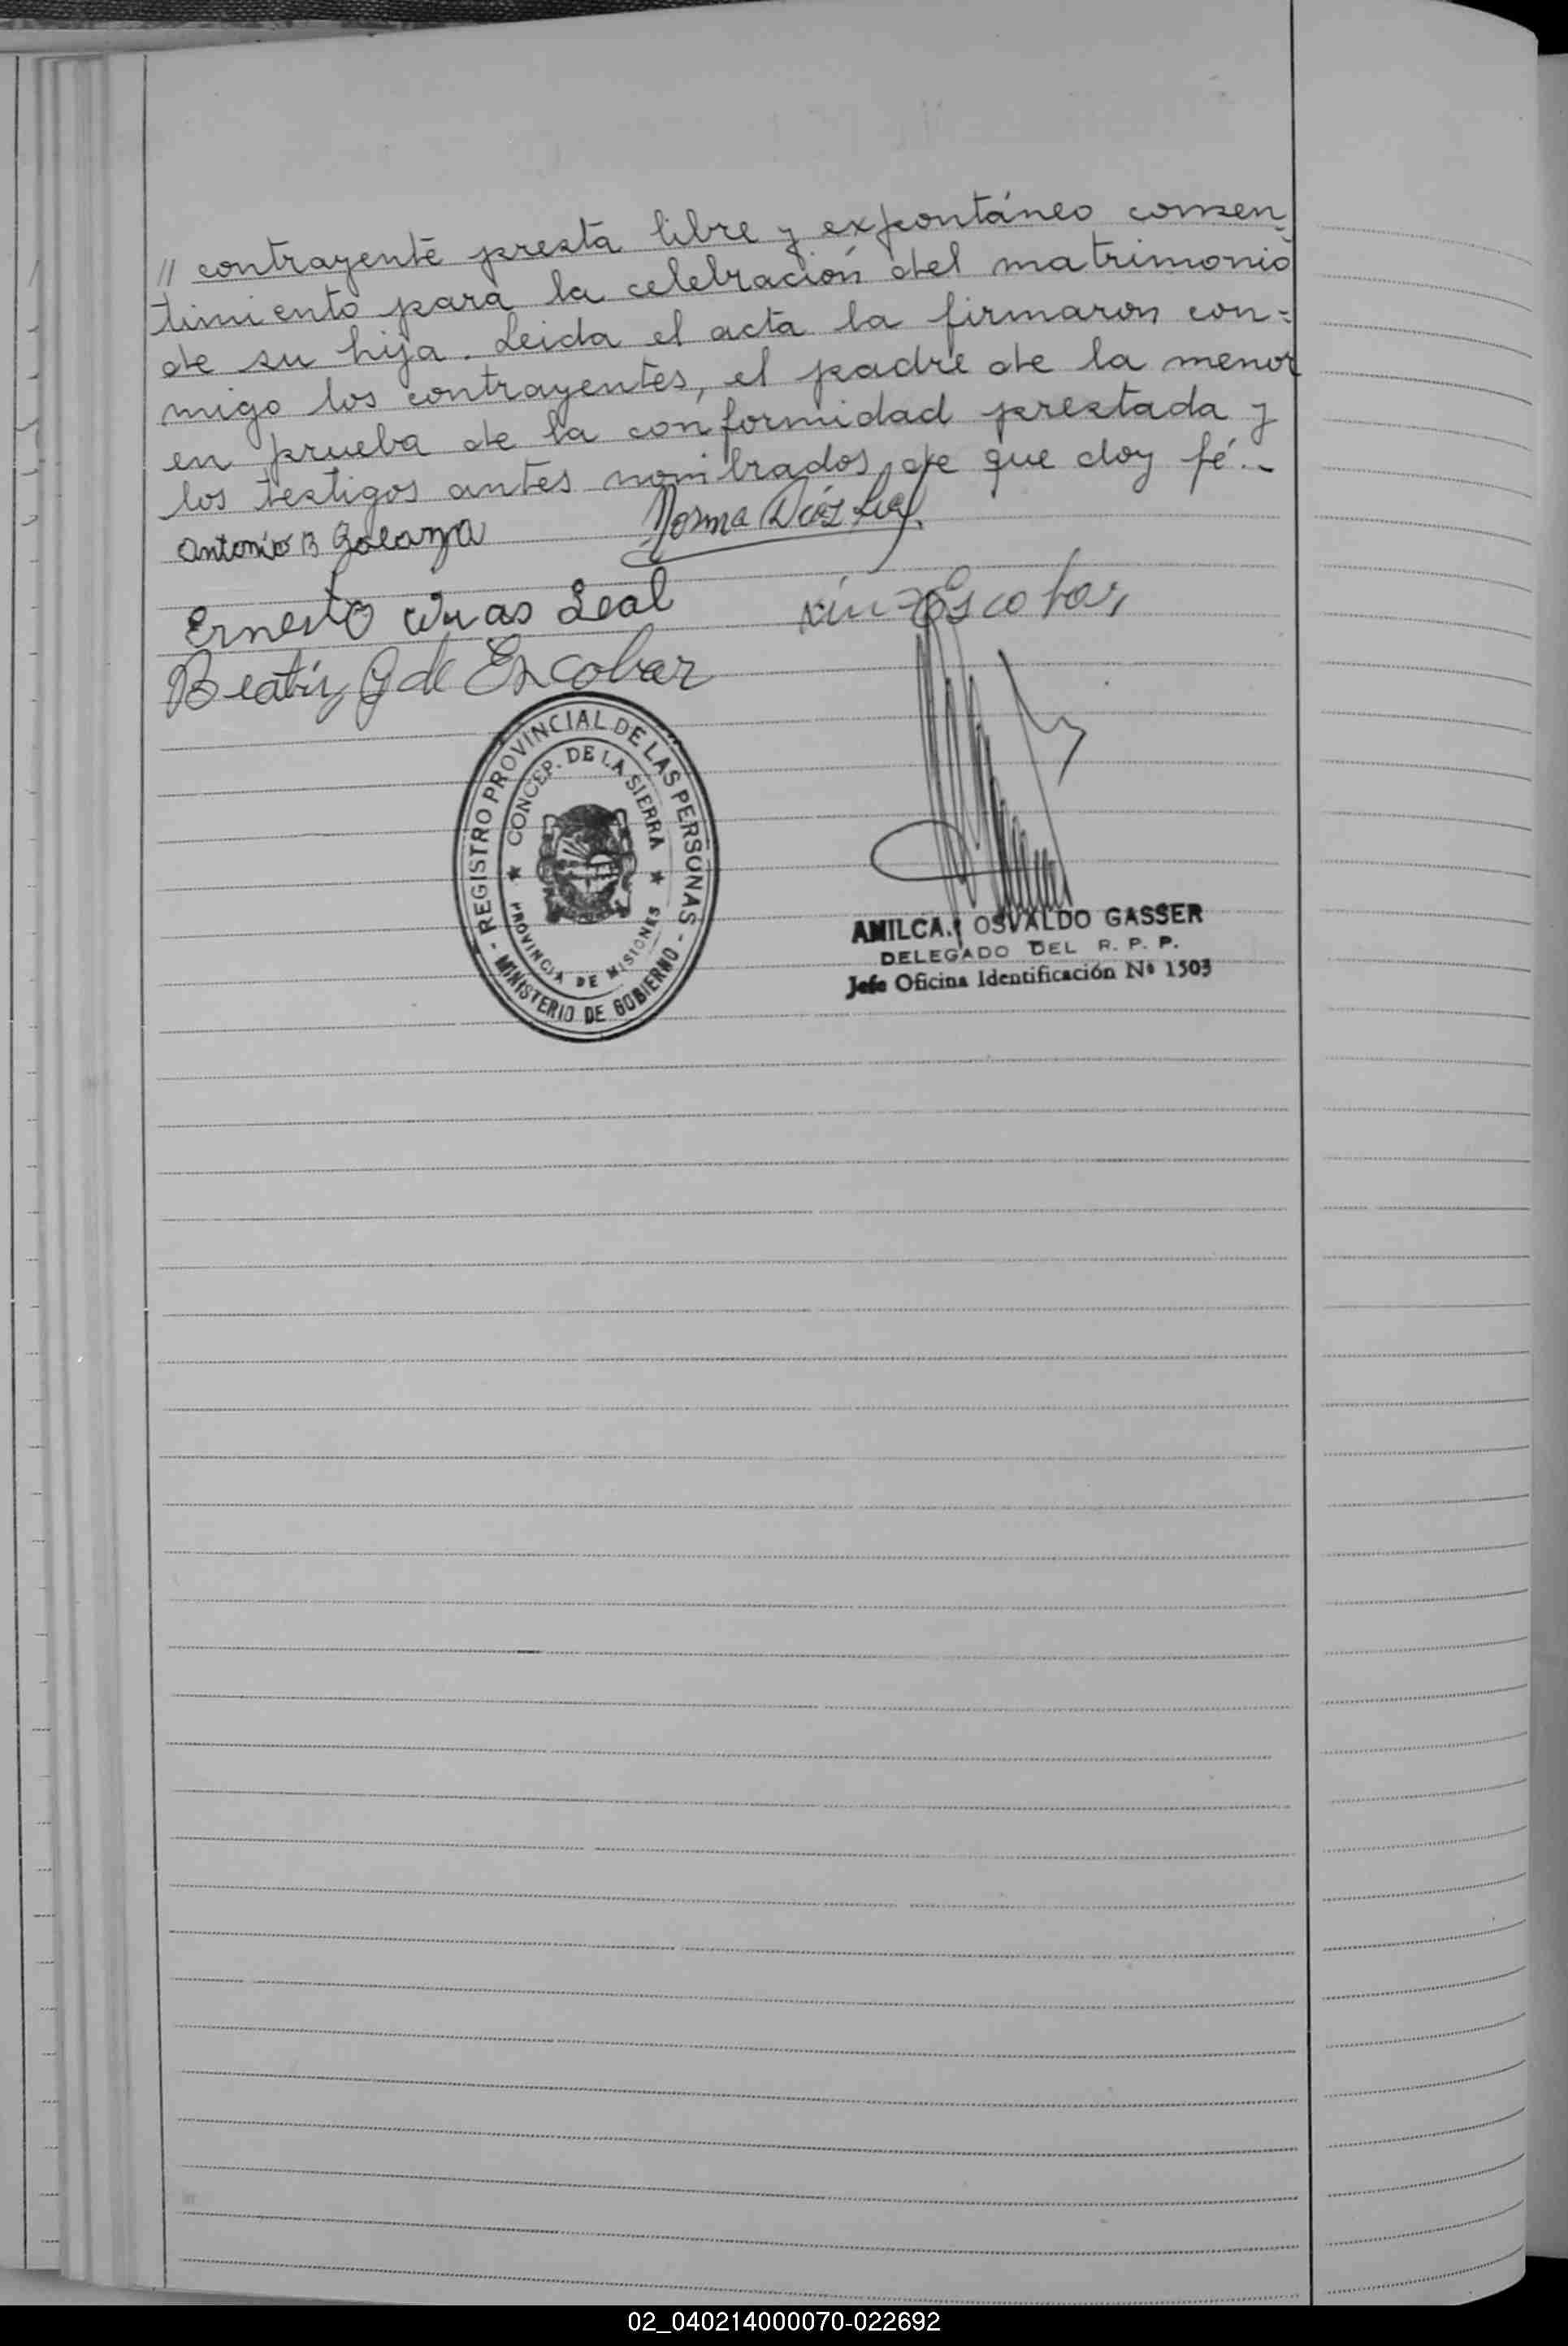 // contrayente presta libre y expontáneo consen-
timiento para la celebración del matrimonio
de su hija. Leida el acta la firmaron con=
migo los contrayentes, el padre de la menor
en prueba de la conformidad prestada y
los testigos antes nombrados, de que doy fé.-
Antonio B Norma Díaz Leal
Ernesto Leal Escobar
Beatriz G de Escobar
- REGISTRO PROVINCIAL DE LAS PERSONAS -
CONCEP. DE LA SIERRA
PROVINCIA DE MISIONES
MINISTERIO DE GOBIERNO
AMILCAR OSVALDO GASSER
DELEGADO DEL R. P. P.
Jefe Oficina Identificación Nº 1503
02_040214000070-022692